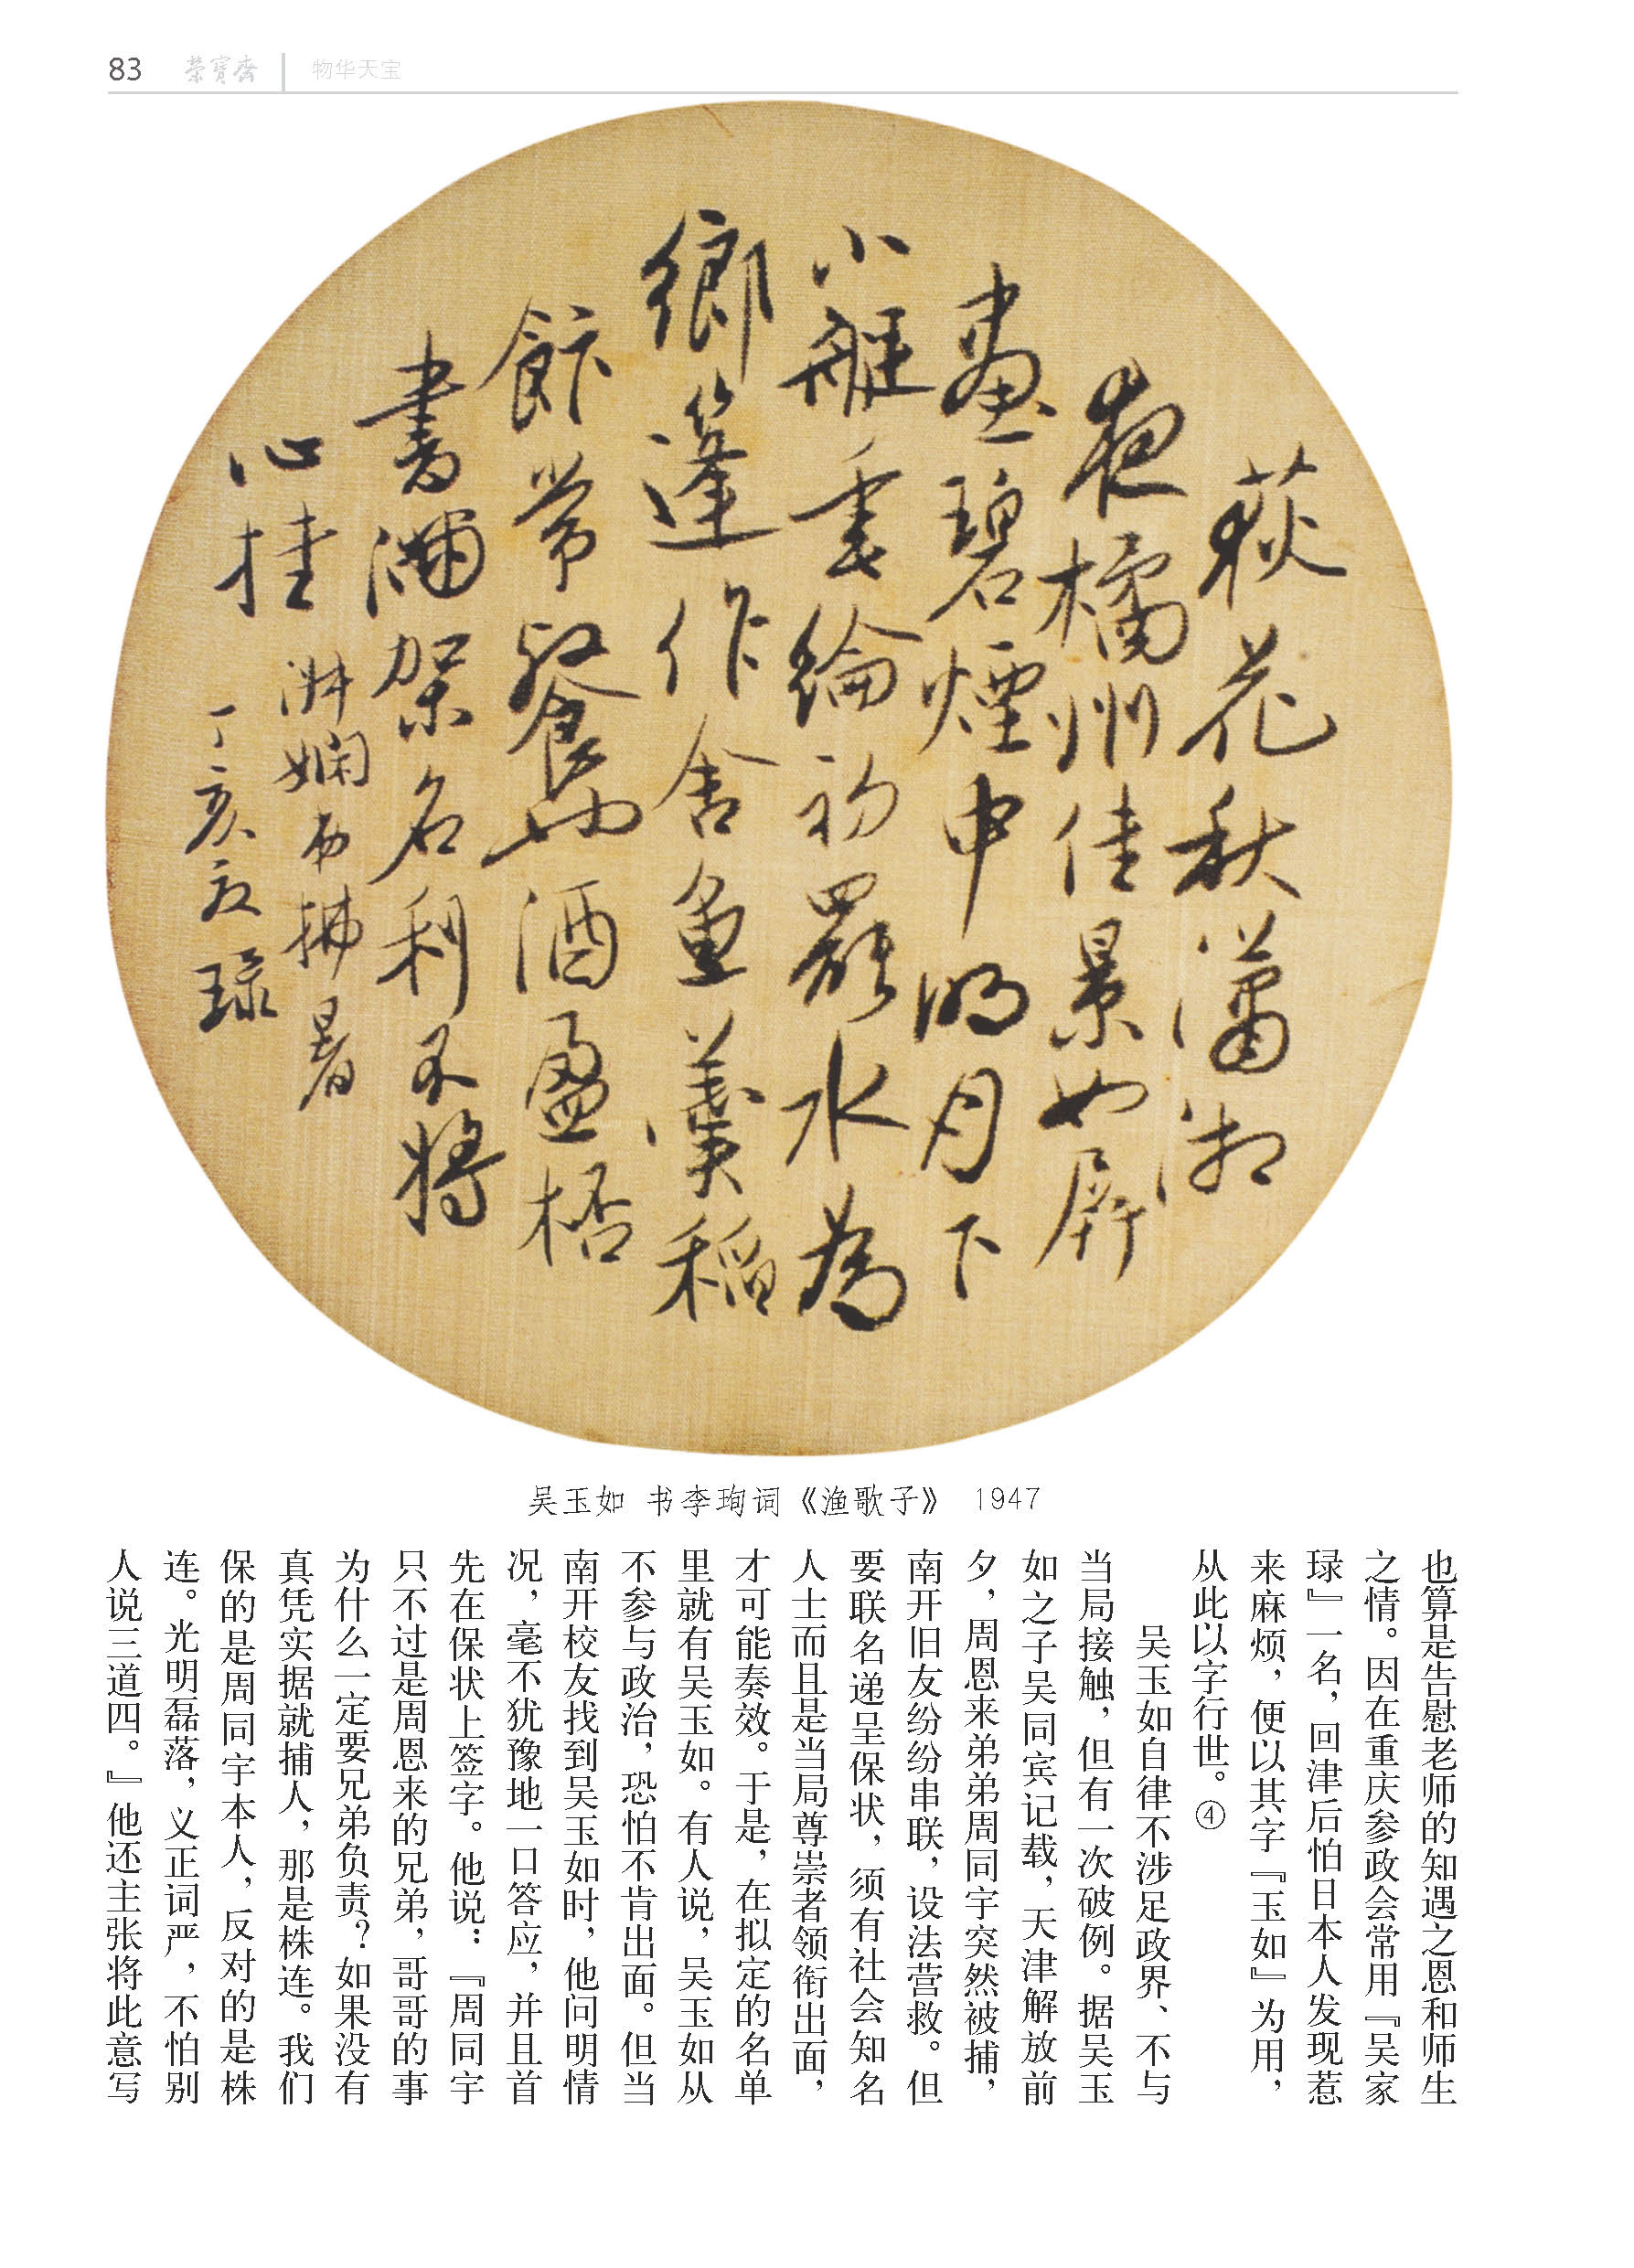 83 荣宝斋 物华天宝
荻花秋瀟湘
夜橘州佳景如屏
畫碧煙中明月下
小艇垂綸初罷水為
鄉蓬作舍魚羹稻
飰常餐也酒盈桮
書滿架名利不將
心挂
拂暑
丁亥夏 琭
吴玉如 书李珣词《渔歌子》 1947
也算是告慰老师的知遇之恩和师生
之情。因在重庆参政会常用『吴家
琭』一名，回津后怕日本人发现惹
来麻烦，便以其字『玉如』为用，
从此以字行世。④
吴玉如自律不涉足政界、不与
当局接触，但有一次破例。据吴玉
如之子吴同宾记载，天津解放前
夕，周恩来弟弟周同宇突然被捕，
南开旧友纷纷串联，设法营救。但
要联名递呈保状，须有社会知名
人士而且是当局尊崇者领衔出面，
才可能奏效。于是，在拟定的名单
里就有吴玉如。有人说，吴玉如从
不参与政治，恐怕不肯出面。但当
南开校友找到吴玉如时，他问明情
况，毫不犹豫地一口答应，并且首
先在保状上签字。他说：『周同宇
只不过是周恩来的兄弟，哥哥的事
为什么一定要兄弟负责？如果没有
真凭实据就捕人，那是株连。我们
保的是周同宇本人，反对的是株
连。光明磊落，义正词严，不怕别
人说三道四。』他还主张将此意写